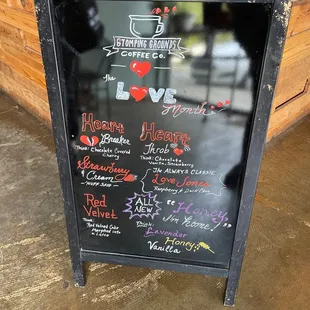 STOMPING GROUNDS
COFFEE Co.
the
LOVE
Month
Heart
Breaker
Think: Chocolate Covered
Cherry
Heart
Throb
Think: Chocolate
Vanilla, Strawberry
Strawberry
& Cream
'NUFF SAID
The ALWAYS CLASSIC
Love Jones
Raspberry & Dark Choc
Red
Velvet
Red Velvet Cake
ALL
NEW
"Honey,
I'm Home"
Think:
Lavender
Honey
Vanilla